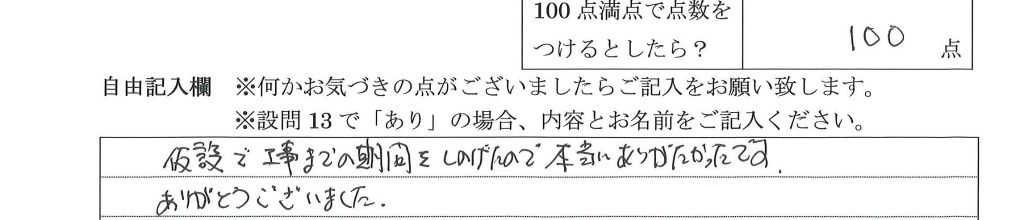 100 点満点で点数を
つけるとしたら？
100 点
自由記入欄 ※何かお気づきの点がございましたらご記入をお願い致します。
※設問 13 で「あり」の場合、内容とお名前をご記入ください。
仮設で工事までの期間をしのげたので本当にありがたかったです.
ありがとうございました.